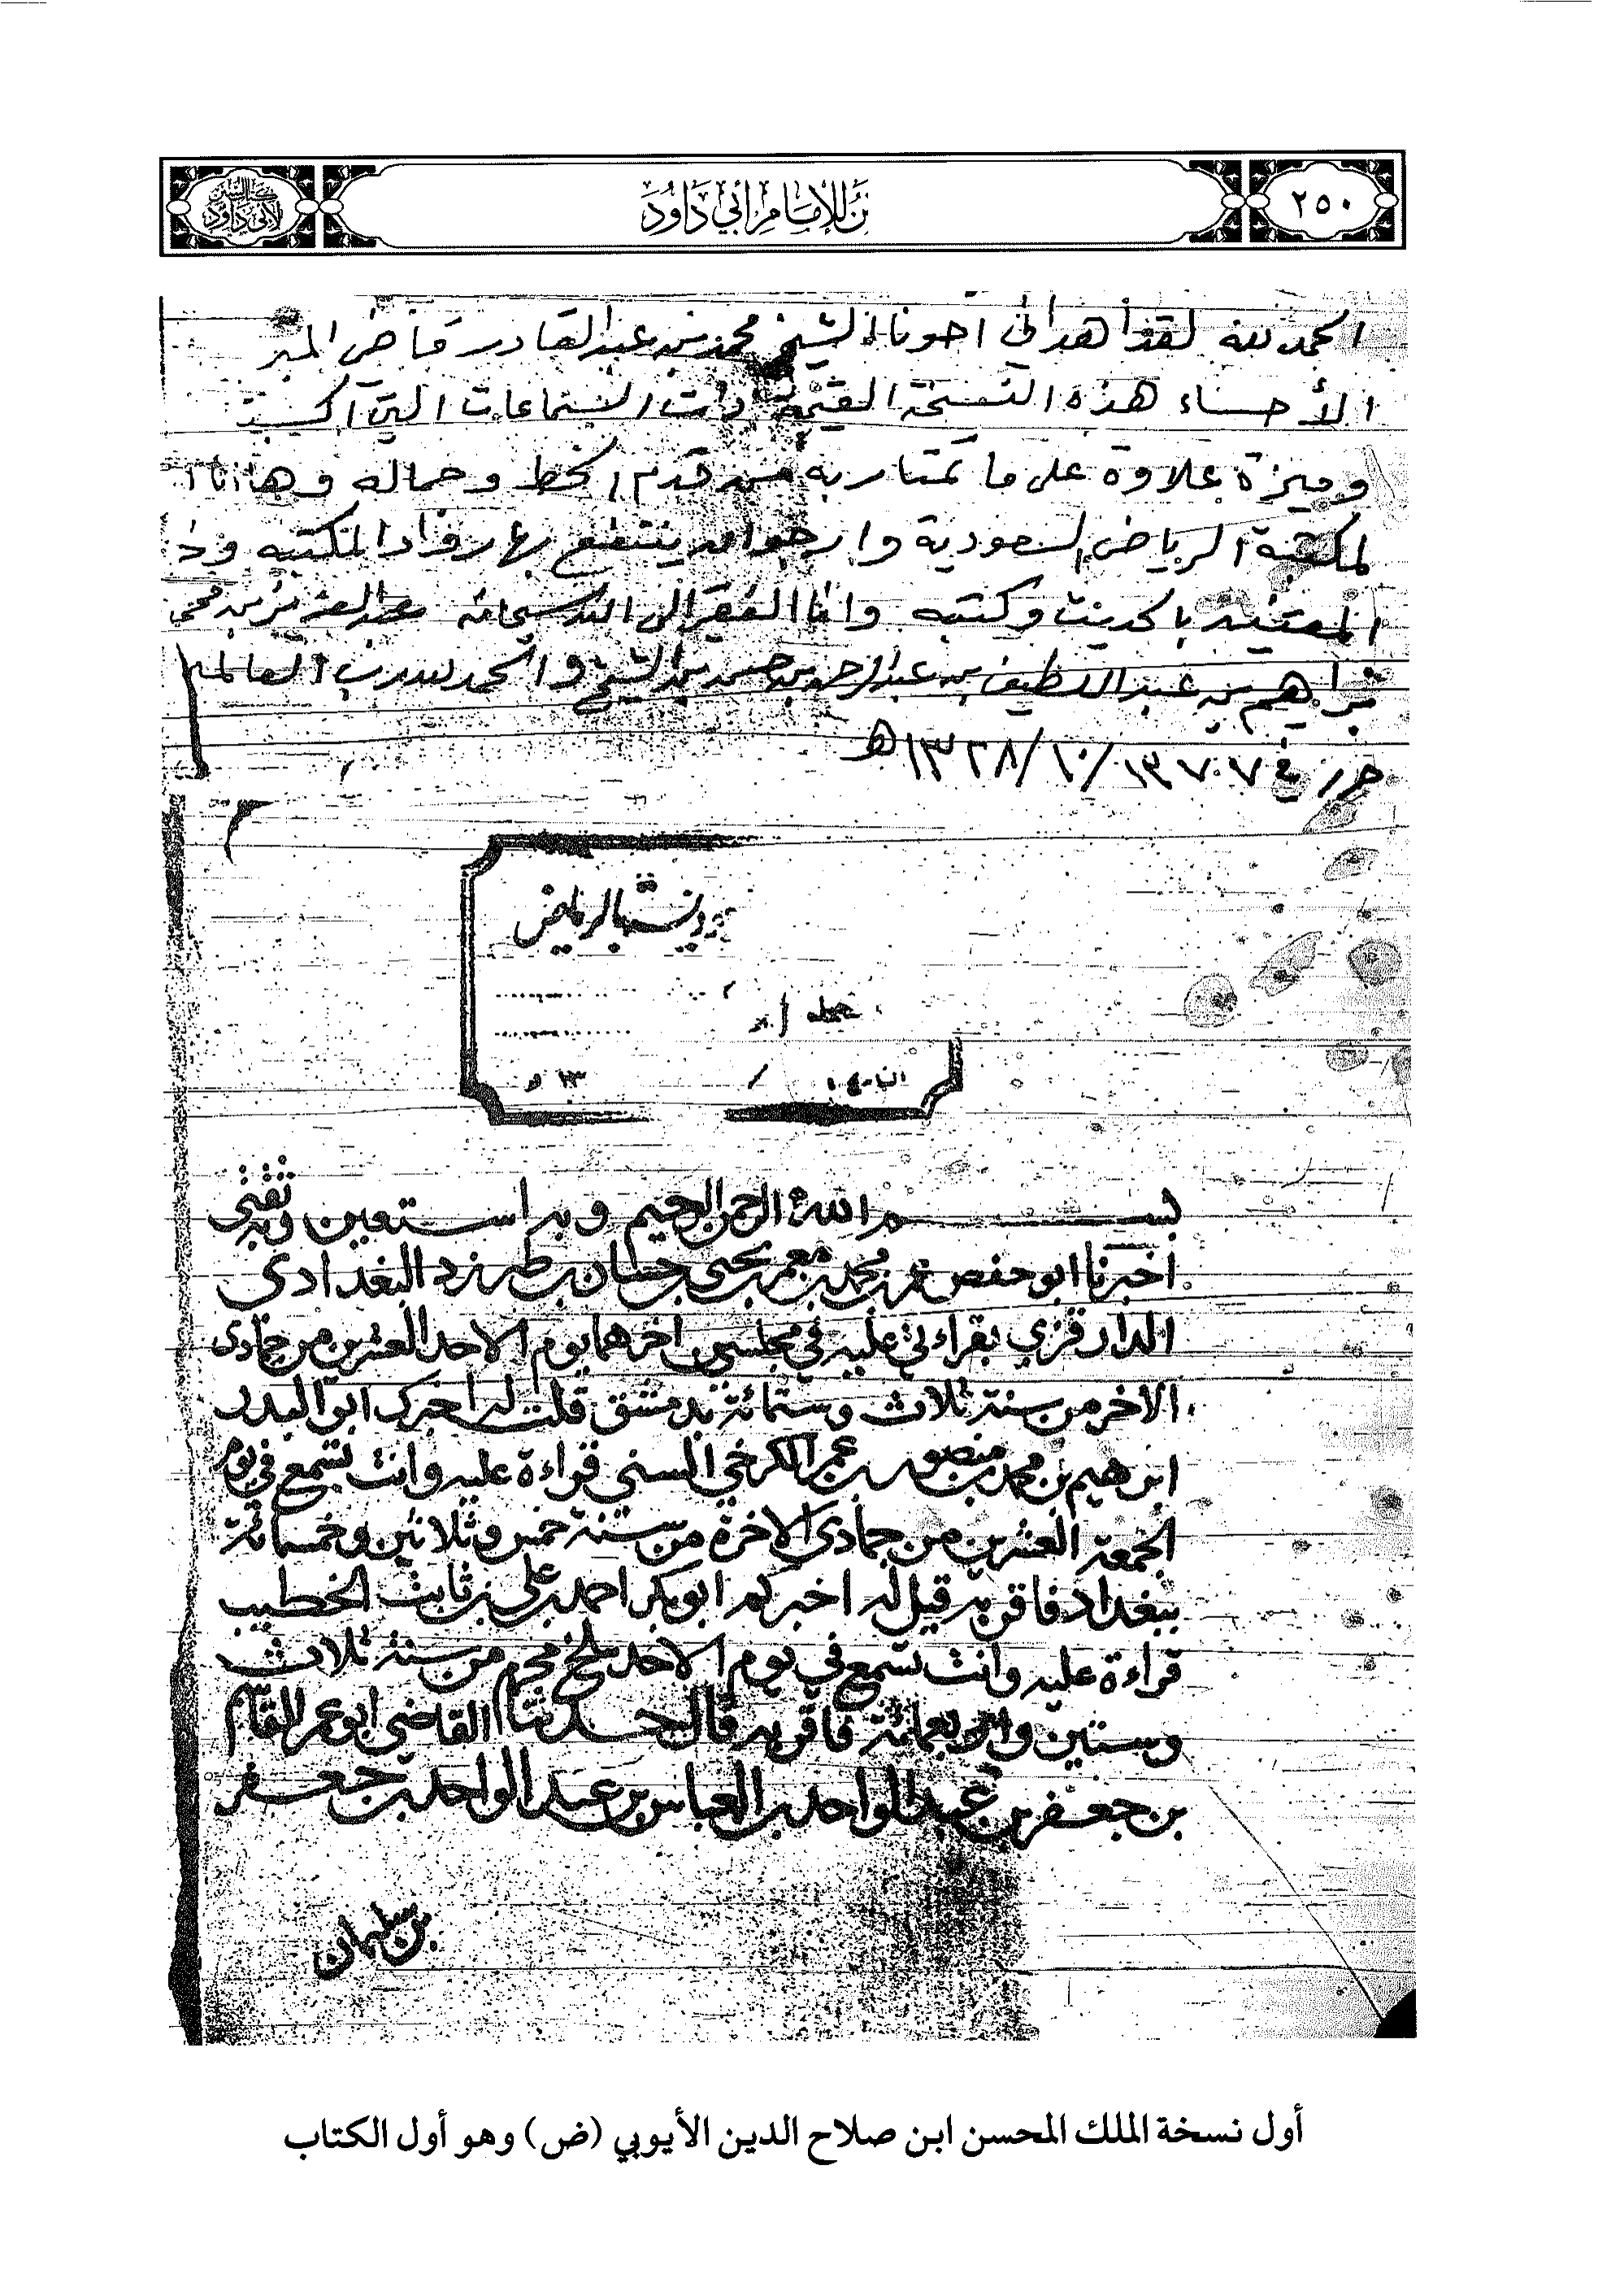 ٢٥٠
نن للإمام أبي داود
كتاب السنن لأبي داود
الحمد لله لقد أهداني أخونا الشيخ محمد بن عبد القادر قاضي المبر
الأحساء هذه النسخة القيمة ذات السماعات التي اكسبت
وميزة علاوة على ما تمتاز به من قدم الخط وجماله وها انا ا
لمكتبة الرياض السعودية وارجو ان ينتفع بها رواد المكتبه وذ
المعتنيه بالحديث وكتبه وانا الفقير الى الله سبحانه عبد العزيز بن محمد
بن ابراهيم بن عبد اللطيف بن عبد الرحمن بن حسن بن الشيخ والحمد لله رب العالمين
حرر في
ودية بالرياض
١٣ هـ
بسم الله الرحمن الرحيم وبه استعين وبه ثقتي
اخبرنا ابو حفص عمر بن محمد بن معمر بن يحيى بن حسان بن طبرزد البغدادي
الدارقزي بقراءتي عليه في مجلسين اخرهما يوم الاحد العشرين من جمادى
الاخر من سنة ثلاث وستمائة بدمشق قلت له اخبرك ابو البدر
ابرهيم بن محمد بن منصور بن عمر الكرخي السني قراءة عليه وانت تسمع في يوم
الجمعة العشرين من جمادى الاخرة من سنة خمس وثلاثين وخمسمائة
ببغداد فاقر به قيل له اخبركم ابو بكر احمد بن علي بن ثابت الخطيب
قراءة عليه وانت تسمع في يوم الاحد سلخ محرم من سنة ثلاث
وستين واربعمائة فاقر به قال حدثنا القاضي ابو عمر القاسم
بن جعفر بن عبد الواحد بن العباس بن عبد الواحد بن جعفر
بن سليمان
أول نسخة الملك المحسن ابن صلاح الدين الأيوبي (ض) وهو أول الكتاب